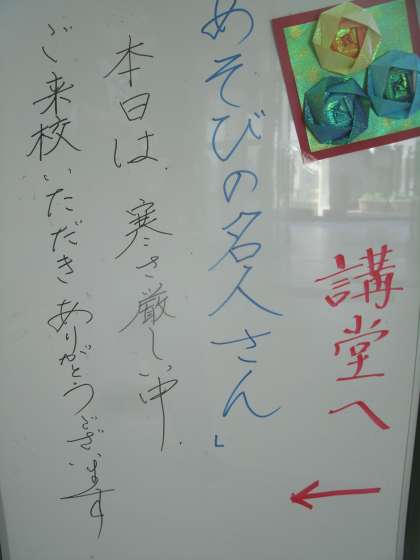 講堂へ
←
あそびの名人さん」
本日は、寒さ厳しい中、
ご来校いただきありがとうございます